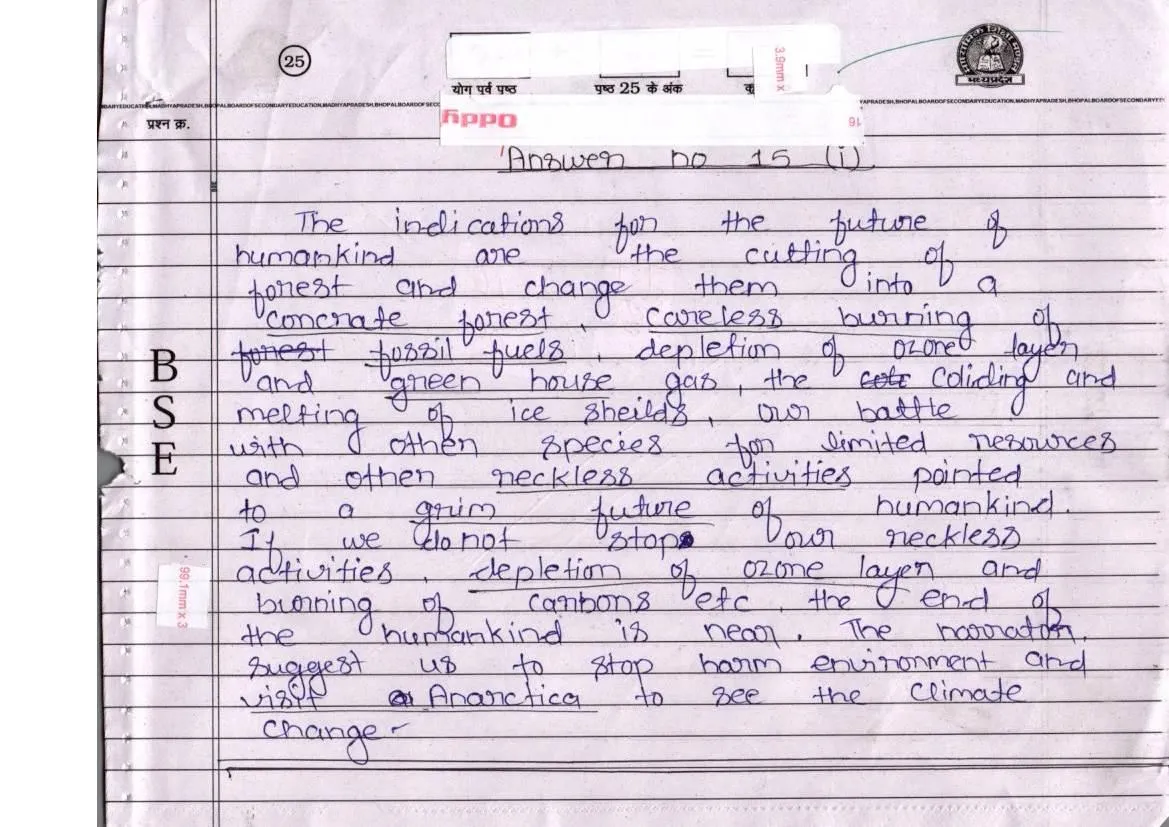 25
योग पूर्व पृष्ठ
पृष्ठ 25 के अंक
3.9mm x
मध्यप्रदेश
प्रश्न क्र.
Oddy
16
Answer no 15 (i)
The indications for the future of
humankind are the cutting of
forest and change them into a
concrate forest, careless burning of
forest fossil fuels, depletion of ozone layer
and green house gas, the Coliding and
melting of ice sheilds, our battle
with other species for limited resources
and other reckless activities pointed
to a grim future of humankind.
If we do not stop our reckless
activities, depletion of ozone layer and
burning of carbons etc, the end of
the humankind is near. The narrator,
suggest us to stop harm environment and
visit Anarctica to see the Climate
change-
B
S
E
99.1mm x 3